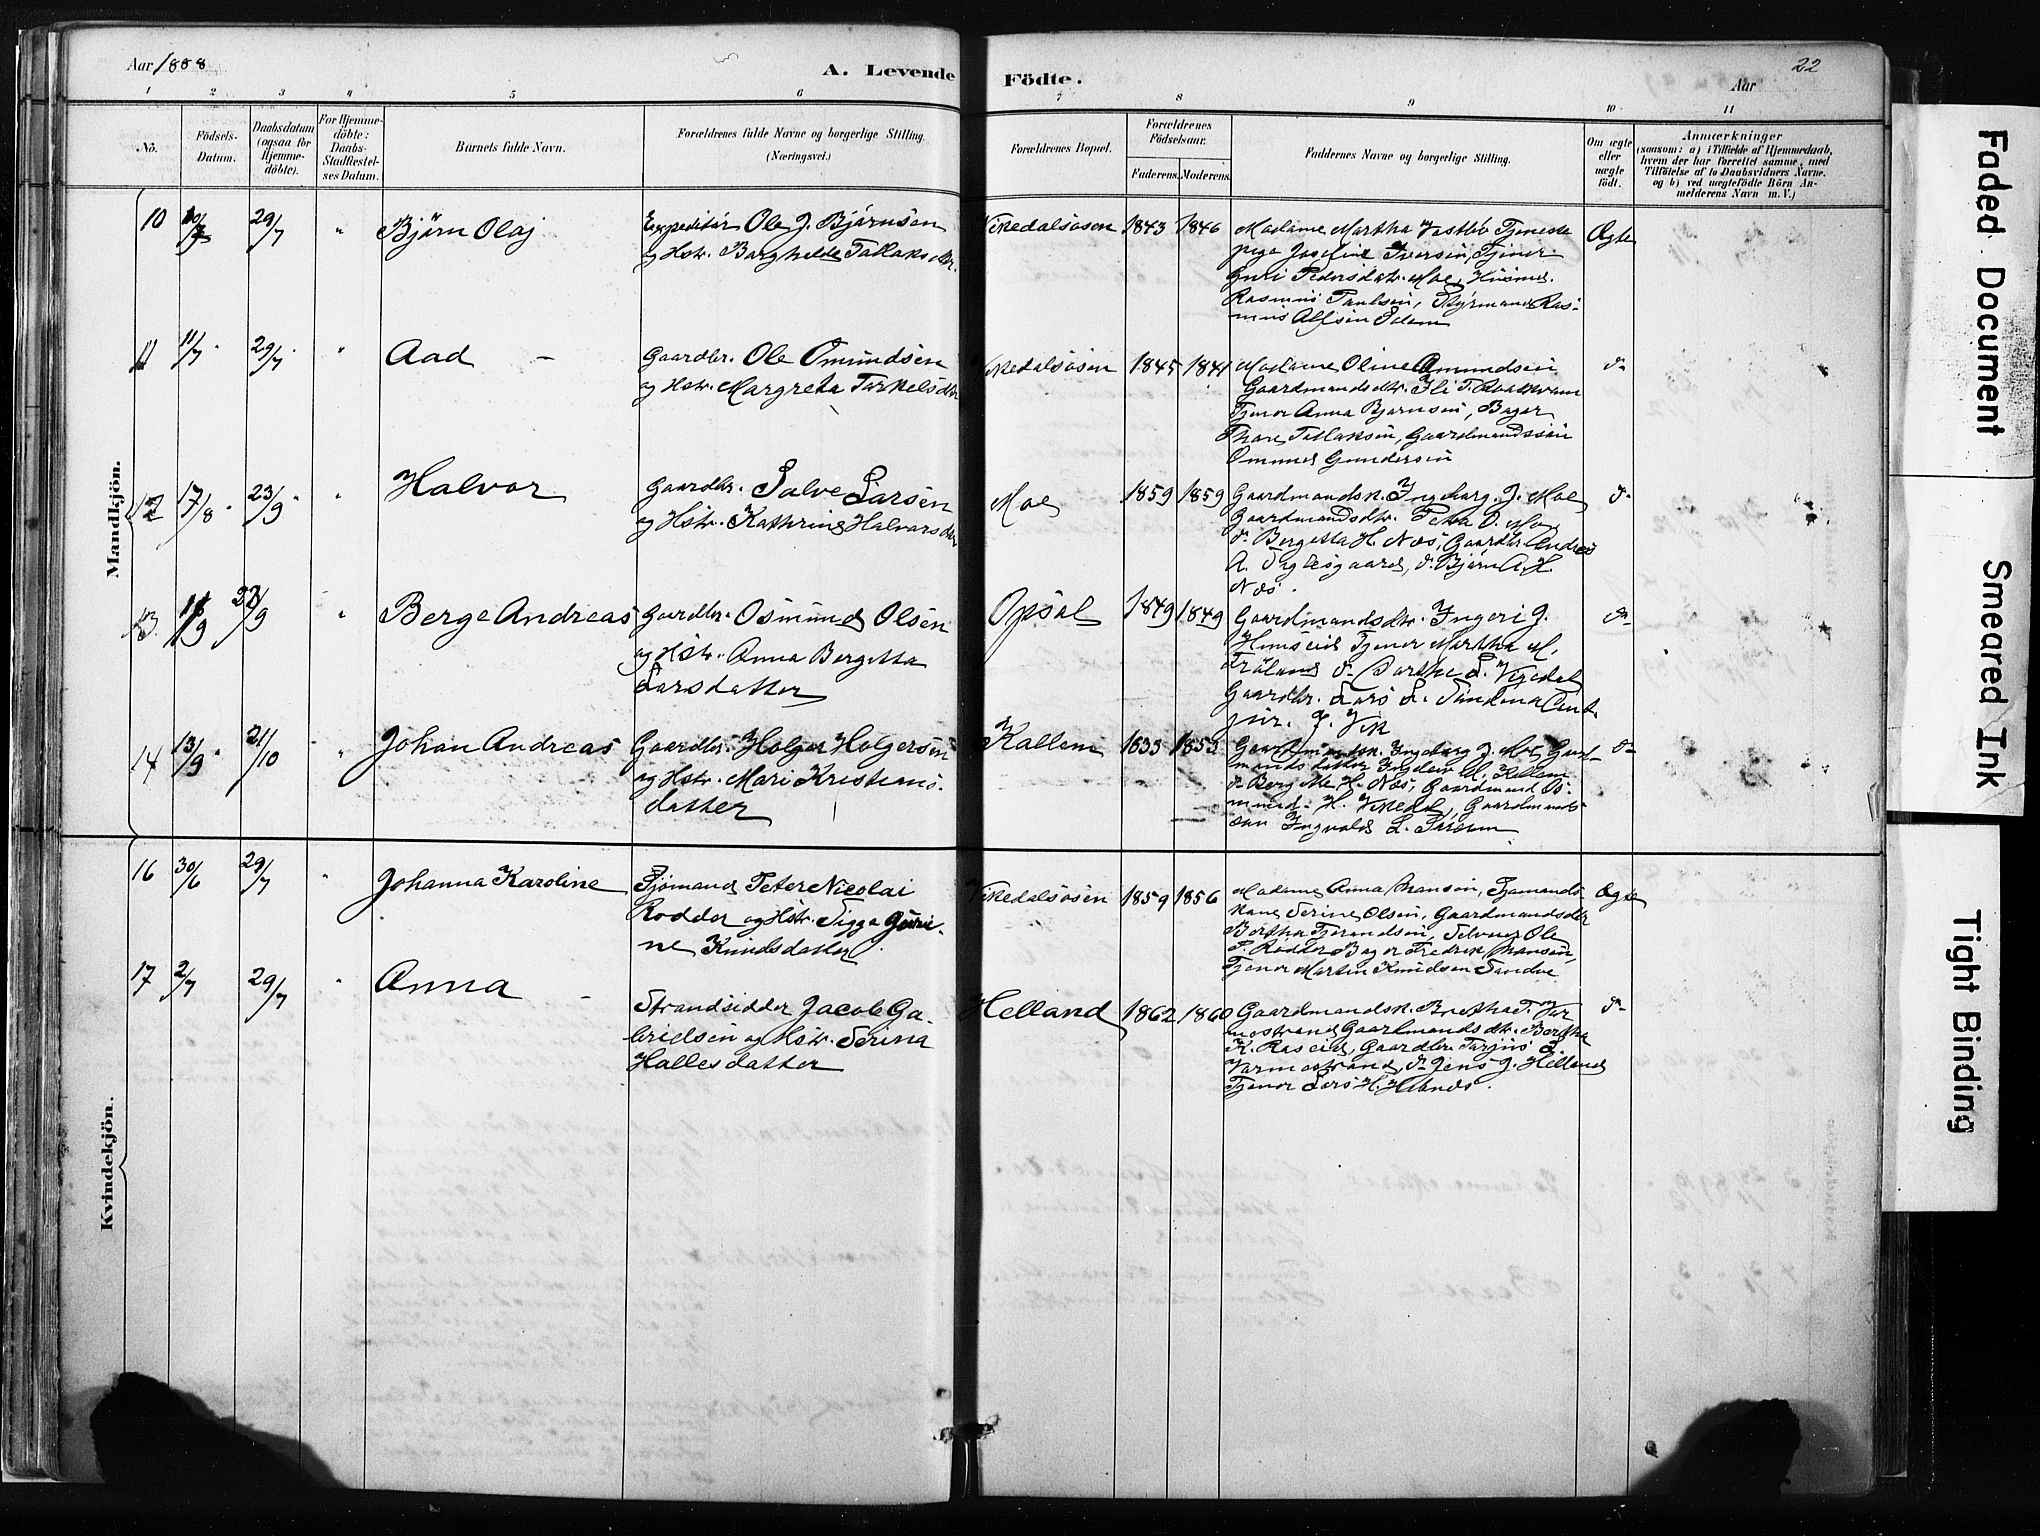 Aar 1888
A. Levende Födte.
22
Aar
1 2 3 4 5 6 7 8 9 10 11
No.
Födsels-Datum.
Daabsdatum (ogsaa for Hjemme-döbte).
For Hjemme-döbte: Daabs-Stadfæstel-ses Datum.
Barnets fulde Navn.
Forældrenes fulde Navne og borgerlige Stilling.
(Næringsvei.)
Forældrenes Bopæl.
Forældrenes Födselsaar.
Faderens. Moderens.
Faddernes Navne og borgerlige Stilling.
Om ægte eller uægte födt.
Anmærkninger
(saasom: a) i Tilfælde af Hjemmedaab, hvem der har forrettet samme, med Tilföielse af to Daabsvidners Navne. og b) ved uægtefödte Börn An-melderens Navn m. V.)
Mandkjön.
10 29/7 " Bjørn Olaj
Expeditør Ole J. Bjørnsen
og Hstr. Borghilde Tollaksdtr.
Vikedalsosen 1843 1846
Madame Martha Vestbö Tjeneste
pige Josefine Iversen, Tjener
Guri Pedersdtr. Moe, Husmd.
Rasmus Paulsen, Styrmand Ras-
mus
Ægte
11 11/7 29/7 " Aad
Gaardbr. Ole Omundsen
og Hstr. Margreta Torkelsdtr
Vikedalsosen 1845 1841
Madame Oline Omundsen
Gaardmandsdtr.
Tjener Anna Bjørnsen, Bager
Thore Tollaksen, Gaardmandssøn
Ommund Gundersen
d-
12 17/8 23/9 " Halvor
Gaardbr. Salve Larsen
og Hstr. Kathrine Halvorsdtr
Moe 1859 1859
Gaardmandsk. Ingeborg J. Moe
Gaardmandsdtr. Petra O. Moe
d- Bergetta H. Næs, Gaardbr Andreas
A. d- Bjørn A. H.
Næs.
d-
13 23/9 " Berge Andreas
Gaardbr. Osmund Olsen
og Hstr. Anna Bergetta
Larsdatter
Opsal 1849 1849
Gaardmandsdtr. Ingeri J.
Tjener Martha M.
d- Barthe L. Vigedal
Gaardbr. Lars L.
J. Vik
d-
14 13/9 21/10 " Johan Andreas
Gaardbr. Holger Holgersen
og Hstr. Mari Kristens-
datter
Kallem 1853
Gaardmandsk. Ingeborg J. Moe, Gaard-
mandsdatter
d- H. Næs, Gaardmand Os-
mund H. Gaardmands
søn Ingvald L.
d-
Kvindekjön.
16 30/6 29/7 " Johanna Karoline
Sjömand Peter Nicolai
Rodder og Hstr. Sigga Guri-
ne Knudsdatter
Vikedalsosen 1859 1856
Madame Anna Hansen, Sjömands
kone Serine Olsen, Gaardmandsdtr
Bertha Ole
P. Rödder Bager Fredrik Hansen,
Tjener Martin Knudsen Sandve
Ægte
17 2/7 29/7 " Anna
Strandsidder Jacob Ga-
brielsen og Hstr. Serina
Hallesdatter
Helland 1862 1860
Gaardmandsk. Bretha T.
Gaardmandsdtr. Bertha
K. Gaardbr.
d- Jens J. Helland
Tjener Lars H.
d-
Faded Document
Smeared Ink
Tight Binding